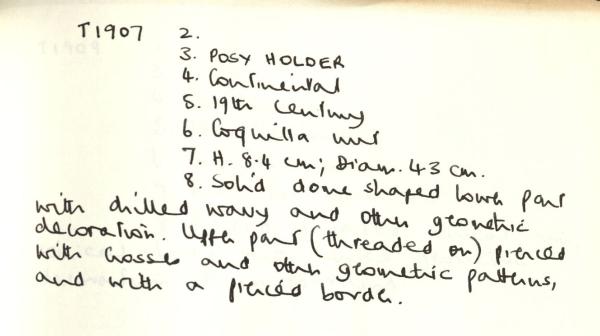 T1907 2.
3. POSY HOLDER
4. Continental
5. 19th century
6. Coquilla nut
7. H. 8.4 cm; Diam. 4.3 cm.
8. Solid dome shaped lower part
with drilled wavy and other geometric
decoration. Upper part (threaded on) pierced
with crosses and other geometric patterns,
and with a pierced border.